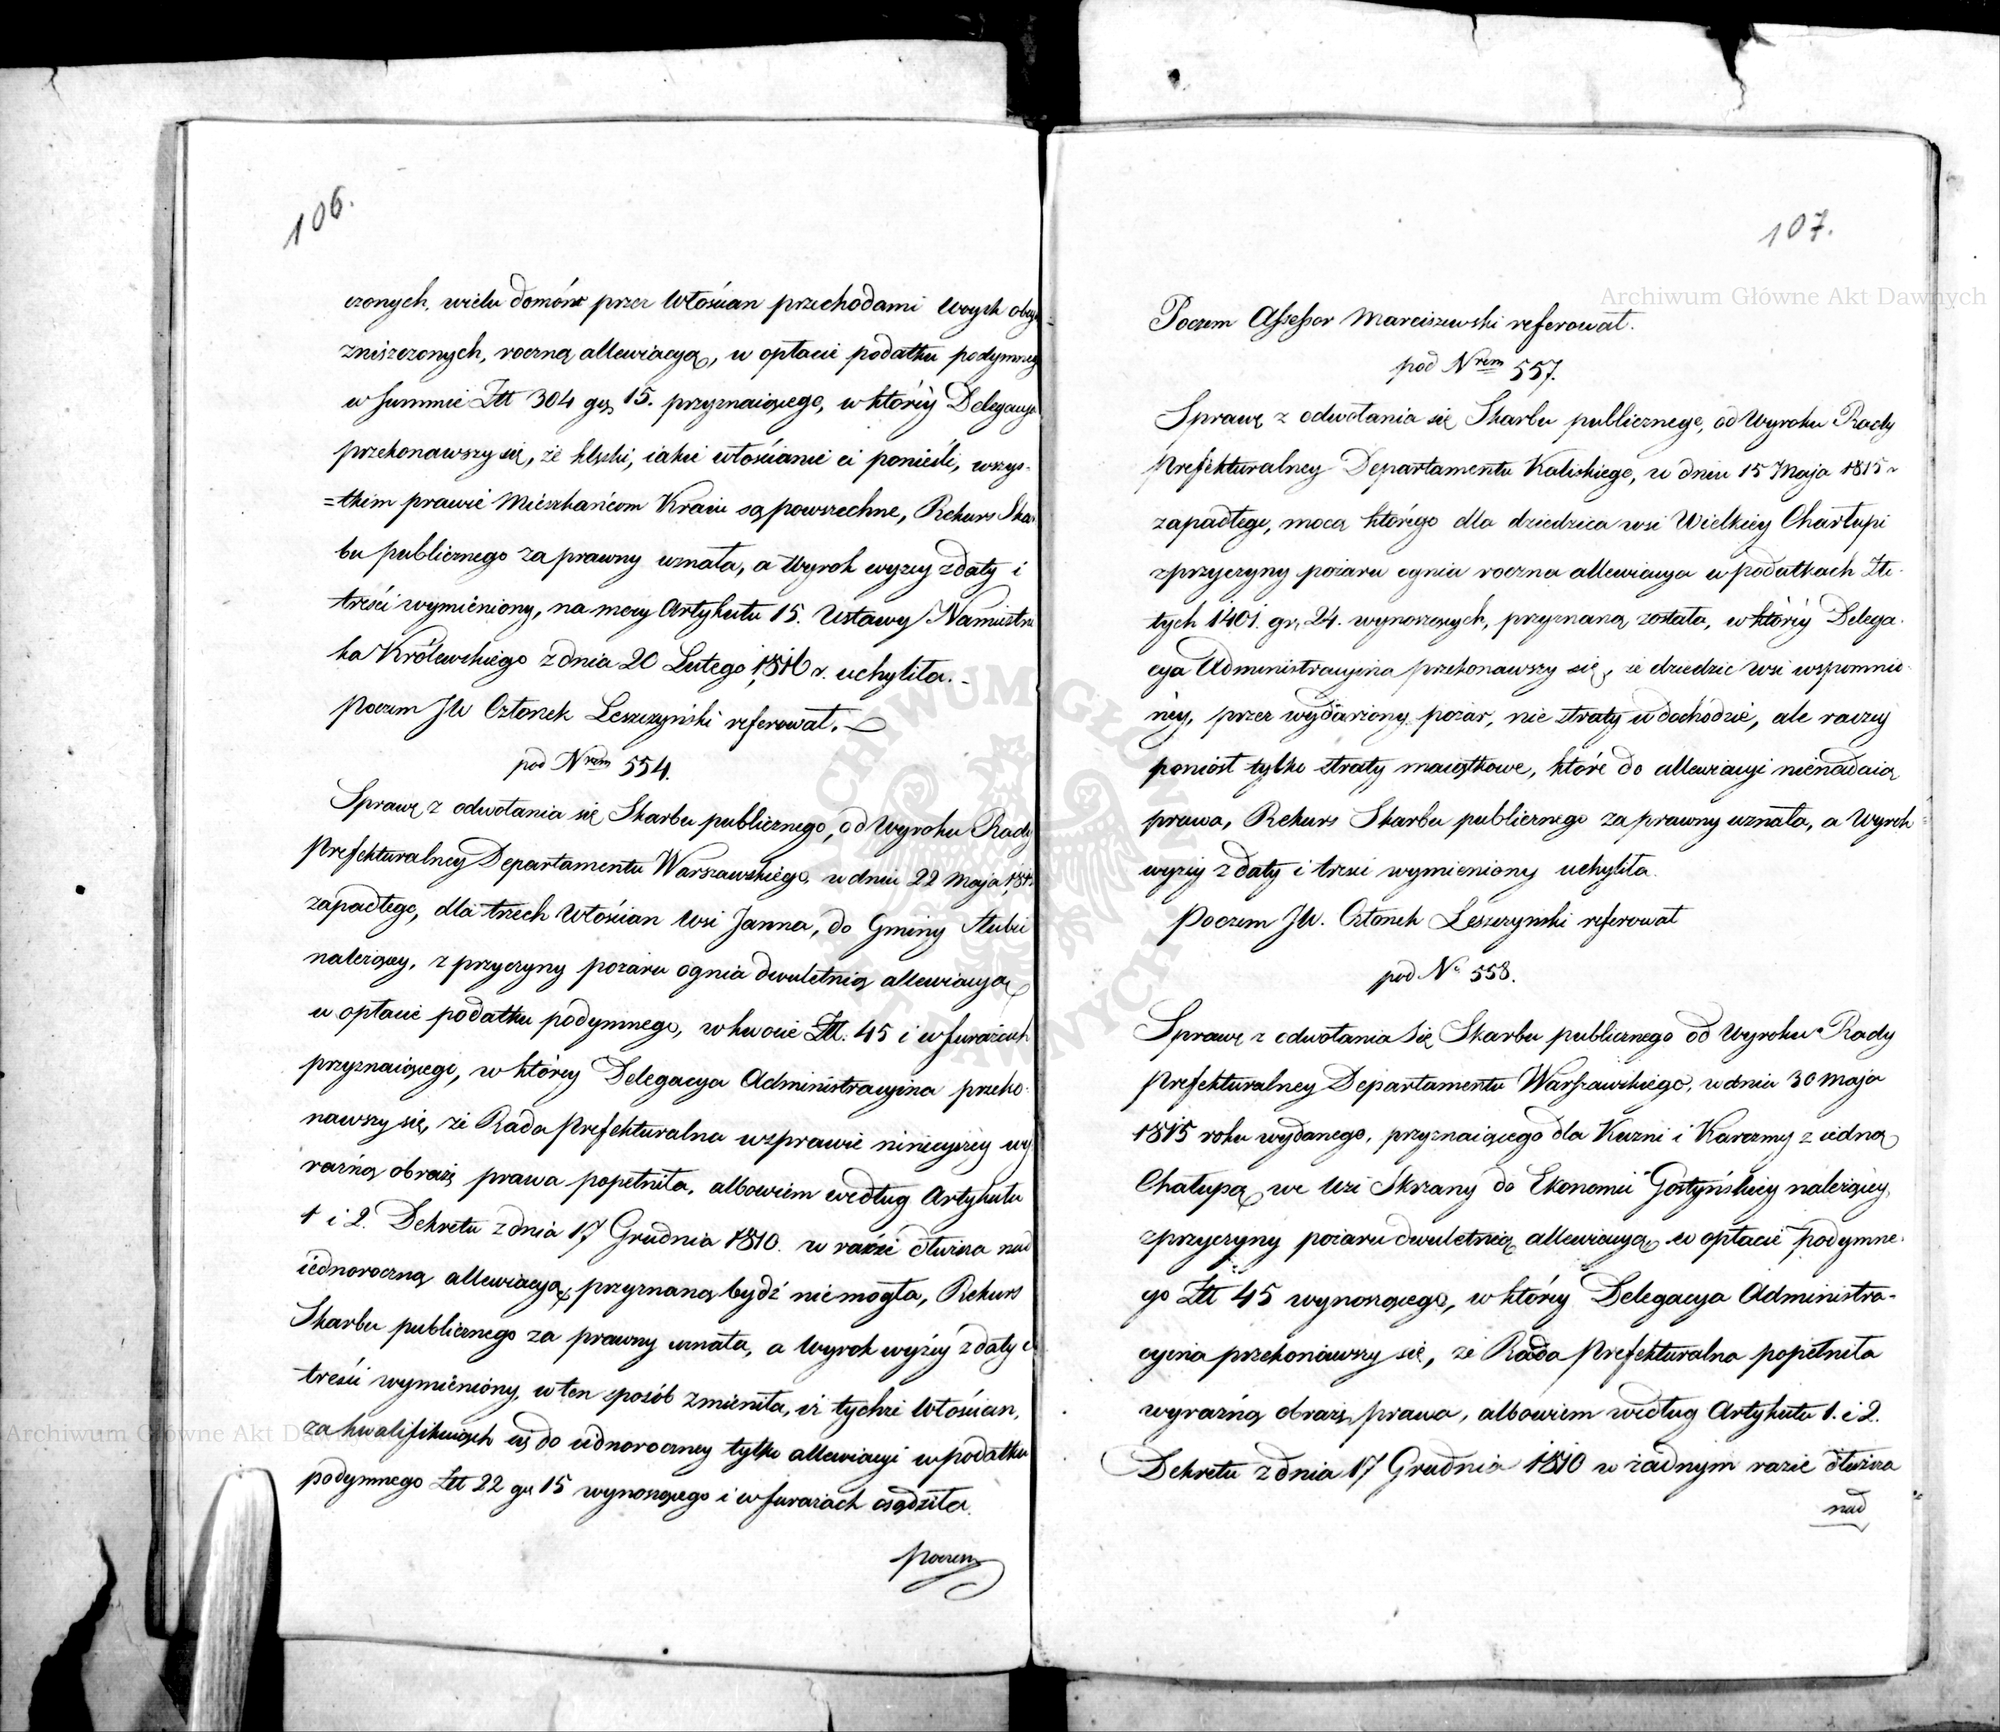 106.
czonych, wielu domów przez Włościan przechodami Woysk obcych
zniszczonych, roczną allewiacyą, w opłacie podatku podymnego
w Summie Złł 304 gr 15. przyznaiącego, w któréy Delegacya
przekonawszy się, że klęski, iakie włościanie ci ponieśli, wszys-
=tkim prawie Mieszkańcom Kraiu są powszechne, Rekurs Skar
bu publicznego za prawny uznała, a Wyrok wyzey z daty i
treści wymieniony, na mocy Artykułu 15. Ustawy Namiestni
ka Królewskiego z dnia 20 Lutego 1816 r. uchyliła.
Poczem JW Członek Leszczyński referował.
pod Nrem 554.
Sprawę z odwołania się Skarbu publicznego, od Wyroku Rady
Prefekturalney Departamentu Warszawskiego, w dniu 22 Maja
zapadłego, dla trzech Włościan Wsi Janna, do Gminy Słubic
należącey, z przyczyny pożaru ognia dwuletnią allewiacyą
w opłacie podatku podymnego, w kwocie Złł. 45 i w furażach
przyznaiącego, w którey Delegacya Administracyina przeko-
nawszy się, że Rada Prefekturalna w sprawie ninieyszey wy
raźną obrazę prawa popełniła, albowiem według Artykułu
1 i 2. Dekretu z dnia 17 Grudnia 1810. w razie dłuższa nad
iednoroczną allewiacyą, przyznaną bydź niemogła, Rekurs
Skarbu publicznego za prawny uznała, a Wyrok wyżéy z daty i
treści wymieniony, w ten sposób zmieniła, iż tychże Włościan,
za kwalifikuiących się do iednoroczney tylko allewiacyi w podatku
podymnego Złł 22 gr 15 wynoszącego i w furażach osądziła.
poczem
107.
Poczem Assessor Marciszewski referował.
pod Nrem 557.
Sprawę z odwołania się Skarbu publicznego, od Wyroku Rady
Prefekturalney Departamentu Kaliskiego, w dniu 15 Maja 1815 r
zapadłego, mocą którego dla dziedzica wsi Wielkiey Charłupi
z przyczyny pożaru ognia roczna allewiacya w podatkach Zło-
tych 1401. gr. 24. wynoszących, przyznaną została, w któréy Delega-
cya Administracyina przekonawszy się, że dziedzic wsi wspomnio-
néy, przez wydarzony pożar, nie straty w dochodzie, ale raczey
poniósł tylko straty maiątkowe, które do allewiacyi nienadaią
prawa, Rekurs Skarbu publicznego za prawny uznała, a Wyrok
wyżéy z daty i treści wymieniony uchyliła.
Poczem JW. Członek Leszczyński referował
pod No 558.
Sprawę z odwołania się Skarbu publicznego od Wyroku Rady
Prefekturalney Departamentu Warszawskiego, w dniu 30 Maja
1815 roku wydanego, przyznaiącego dla Kuzni i Karczmy z iedną
Chałupą we Wsi Skrzany do Ekonomii Gostyńskiey należącey,
z przyczyny pożaru dwuletnią allewiacyą, w opłacie podymne-
go Złł 45 wynoszącego, w któréy Delegacya Administra-
cyina przekonawszy się, że Rada Prefekturalna popełniła
wyraźną obrazę prawa, albowiem według Artykułu 1. i 2.
Dekretu z dnia 17 Grudnia 1810 w żadnym razie dłuższa
nad
Archiwum Główne Akt Dawnych
Archiwum Główne Akt Dawnych
ARCHIWUM GŁÓWNE AKT DAWNYCH